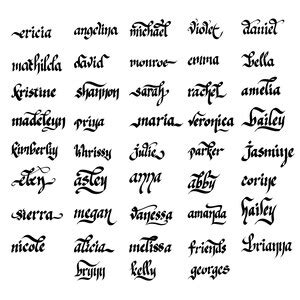 ericia angelina michael violet daniel
mathilda david monroe emma bella
kristine shannon sarah rachel amelia
madeleyn priya maria veronica hailey
kimberliy chrissy julie parker jasmine
eben ashley anna abby corine
sierra megan vanessa amanda hailey
nicole alicia melissa friends brianna
brynn kelly georges